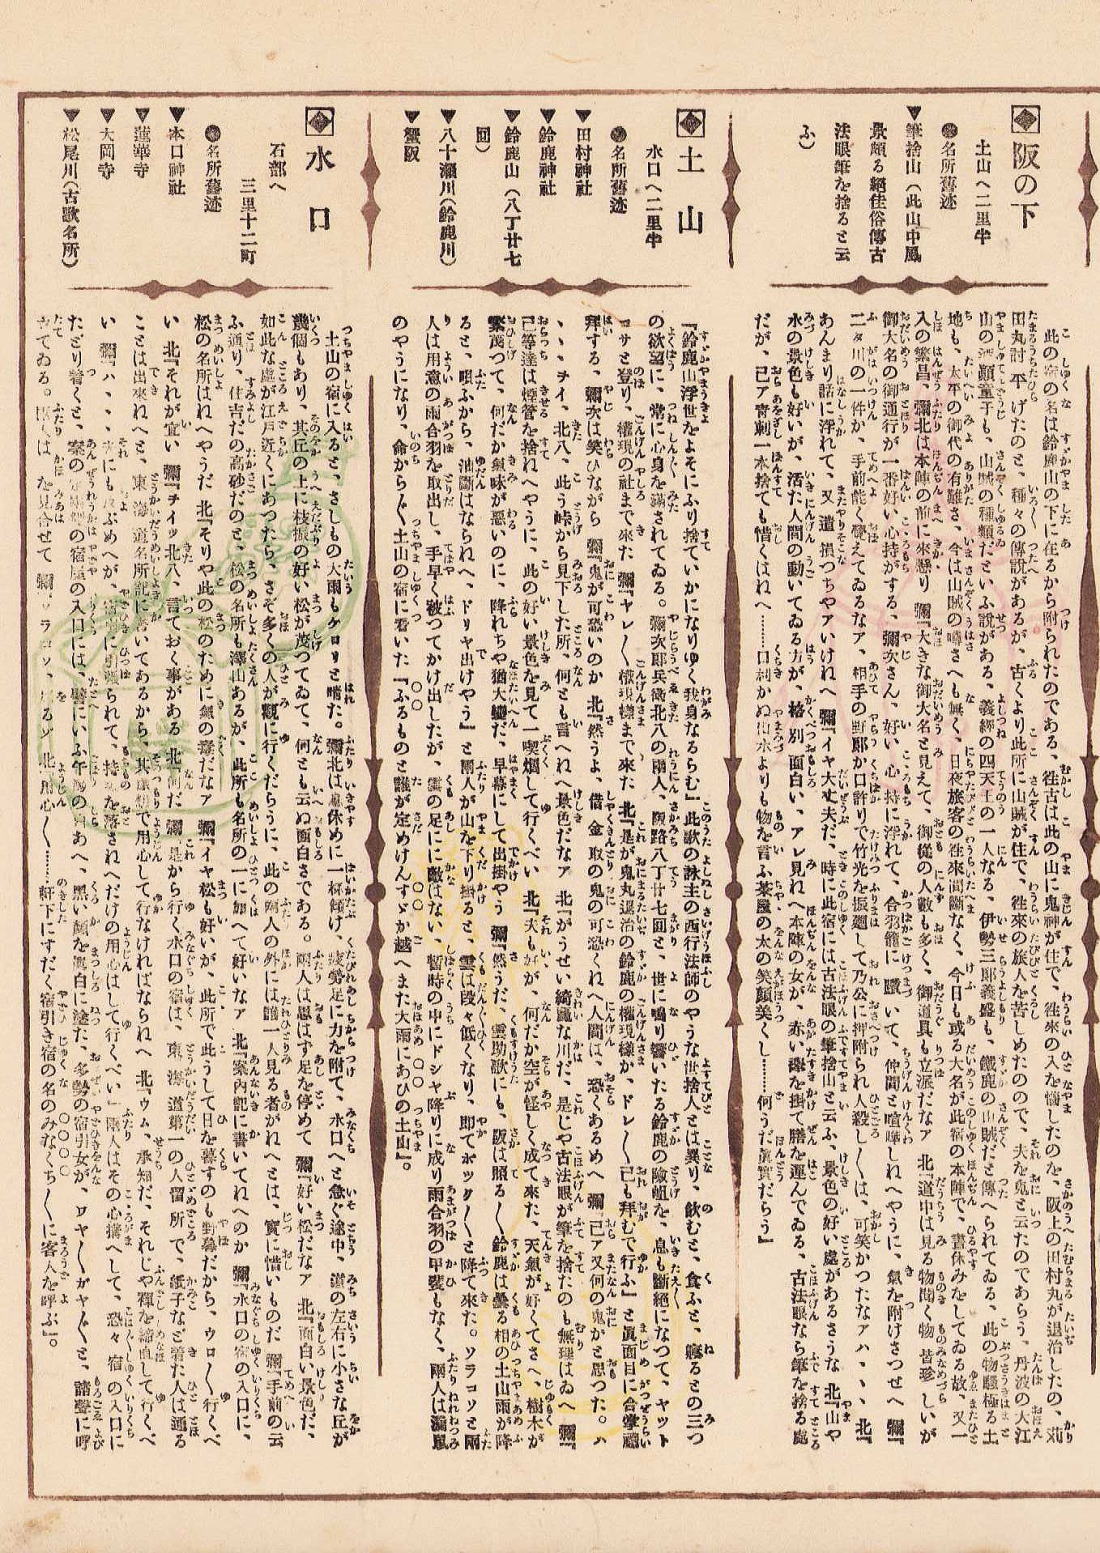 阪の下
土山へ二里半
●名所舊迹
▼筆捨山（此山中風
景頗る絕佳俗傳古
法眼筆を捨ると云
ふ）
此の宿の名は鈴鹿山の下に在るから附られたのである、往古は此の山に鬼神が住で、往來の人を惱したのを、阪上の田村丸が退治したの、苅
田丸討平げたのと、種々の傳說があるが、古くより此所に山賊が住で、往來の旅人を苦しめたので、夫を鬼と云たのであらう、丹波の大江
山の酒顚童子も、山賊の種類だといふ說がある、義經の四天王の一人なる、伊勢三郎義盛も、鈴鹿の山賊だと傳へられてゐる、此の物騷極る土
地も、太平の御代の有難さ、今は山賊の噂さへも無く、日夜旅客の往來間斷なく、今日も或る大名が此宿の本陣で、晝休みをしてゐる故、又一
入の繁昌、彌北は本陣の前に來懸り 彌『大きな御大名と見えて、御從の人數も多く、御道具も立派だなア 北『道中は見る物聞く物皆珍しいが
御大名の御通行が一番好い心持がする、彌次さん、好い心持に浮れて、合羽籠に躓いて、仲間と喧嘩しねへやうに、氣を附けさつせへ 彌『
二タ川の一件か、手前能く覺えてゐるなア、相手の野郎が口許りで竹光を振廻して乃公に押附られ人殺し〱は、可笑かつたなアハヽヽ 北『
あんまり話に浮れて、又遣損つちやアいけねへ 彌『イヤ大丈夫だ、時に此宿には古法眼の筆捨山と云ふ、景色の好い處があるさうな 北『山や
水の景色も好いが、活た人間の動いてゐる方が、格別面白い、アレ見ねへ本陣の女が、赤い襷を掛て膳を運んでゐる、古法眼なら筆を捨る處
だが、己ア靑剌一本捨ても惜くはねへ……口利かぬ山水よりも物を言ふ茶屋の女の笑顏美くし……何うだ眞實だらう』
土山
水口へ二里半
●名所舊迹
▼田村神社
▼鈴鹿神社
▼鈴鹿山（八丁廿七
囘）
▼八十瀨川（鈴鹿川）
▼蟹阪
『鈴鹿山浮世をよそにふり捨ていかになりゆく我身なるらむ』此歌の詠主の西行法師のやうな世捨人とは異り、飮むと、食ふと、寢るとの三つ
の欲望に、常に心身を滿されてゐる。彌次郎兵衞北八の兩人、阪路八丁廿七囘と、世に鳴り響いたる鈴鹿の險岨を、息も斷絕になつて、ヤット
コサと登り、權現の社まで來た 彌『ヤレ〱權現樣まで來た 北『是が鬼丸退治の鈴鹿の權現樣か、ドレ〱己も拜むで行ふ』と眞面目に合掌禮
拜する、彌次は笑ひながら 彌『鬼が可恐いのか 北『然うよ、借金取の鬼の可恐くねへ人間は、恐くあるめへ 彌『己ア又何の鬼かと思つた。ハ
ヽヽヲイ、北八、此う峠から見下した所、何とも言へねへ景色だなア 北『がうせい綺麗な川だ、是じや古法眼が筆を捨たのも無理はゐへ 彌『
己等達は煙管を捨ねへやうに、此の好い景色を見て一喫烟して行くべい 北『夫も好いが、何だか空が怪しく成て來た、天氣が好くてさへ、樹木が
繁茂つて、何だか氣味が惡いのに、降れちや猶大變だ、早幕にして出掛やう 彌『然うだ、雲助歌にも、阪は照る〱鈴鹿は曇る相の土山雨が降
ると、唄ふから、油斷はなられへ、ドリヤ出けやう』と兩人が山を下り掛ると、雲は段々低くなり、即てポックと降て來た。ソラコソと兩
人は用意の雨合羽を取出し、手早く被つてかけ出したが、雲の足には敵はない、暫時の中にドシャ降りに成り雨合羽の甲斐もなく、兩人は濡鼠
のやうになり、命から〲土山の宿に着いた『ふるものと誰が定めけんすゞか越へまた大雨にあひの土山』。
水口
石部へ
三里十二町
●名所舊迹
▼水口神社
▼蓮華寺
▼大岡寺
▼松尾川（古歌名所）
土山の宿に入ると、さしもの大雨もケロリと晴た。彌北は息休めに一杯傾け、疲勞足に力を附て、水口へと急ぐ途中、道の左右に小さな丘が
幾個もあり、其丘の上に枝振の好い松が茂つてゐて、何とも云ぬ面白さである。兩人は思はず足を停めて 彌『好い松だなア 北『面白い景色だ、
如此な處が江戶近くにあつたら、さぞ多くの人が觀に行くだらうに、此の兩人の外には誰一人見る者がねへとは、實に惜いものだ 彌『手前の云
ふ通り、住吉だの高砂だのと、松の名所も澤山あるが、此所も名所の一に加へて好いなア 北『案内記に書いてねへのか 彌『水口の宿の入口に、
松の名所はねへやうだ 北『そりや此の松のために氣の毒だなア 彌『イヤ松も好いが、此所で此うして日を暮すのも野暮だから、ウロ〱行くべ
い 北『それが宜い 彌『ヲイッ北八、言ておく事がある 北『何だ 彌『是から行く水口の宿は、東海道第一の人留所で、紙子など着た人は通る
ことは出來ねへと、東海道名所記に書いてあるから、其積で用心して行なければならねへ 北『ウム、承知だ、それじや褌を締直して行くべ
い 彌『ハヽヽ夫にも及ぶめへが、宿引に引張られて、持物を落さねへだけの用心はして行くべい』兩人はその心搆へして、恐々宿の入口に
たどり着くと、案の定水口の宿の入口には、譬にいふ午房の白あへ、黑い顏を眞白に塗た、多勢の宿引女が、ワヤ〱ガヤ〱と、諸聲に呼
立てゐる。兩人は顏を見合せて 彌『ソラコソ、來るゾ 北『用心〱……軒下にすだく宿引き宿の名のみなくち〱に客人を呼ぶ』。